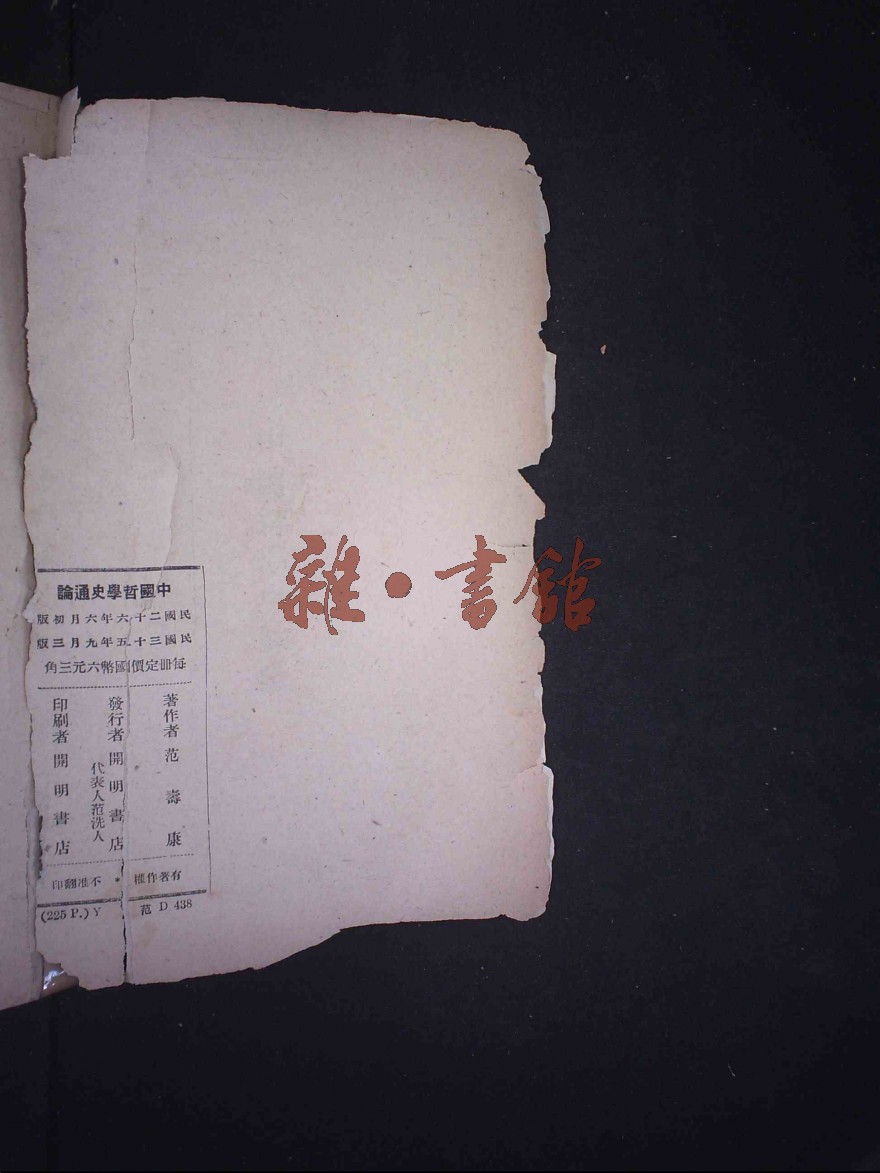 中國哲學史通論
民國二十六年六月初版
民國三十五年九月三版
每冊定價國幣六元三角
著作者 范壽康
發行者 開明書店
代表人范洗人
印刷者 開明書店
有著作權・不准翻印
(225 P.) Y 范 D 438
雜・書館